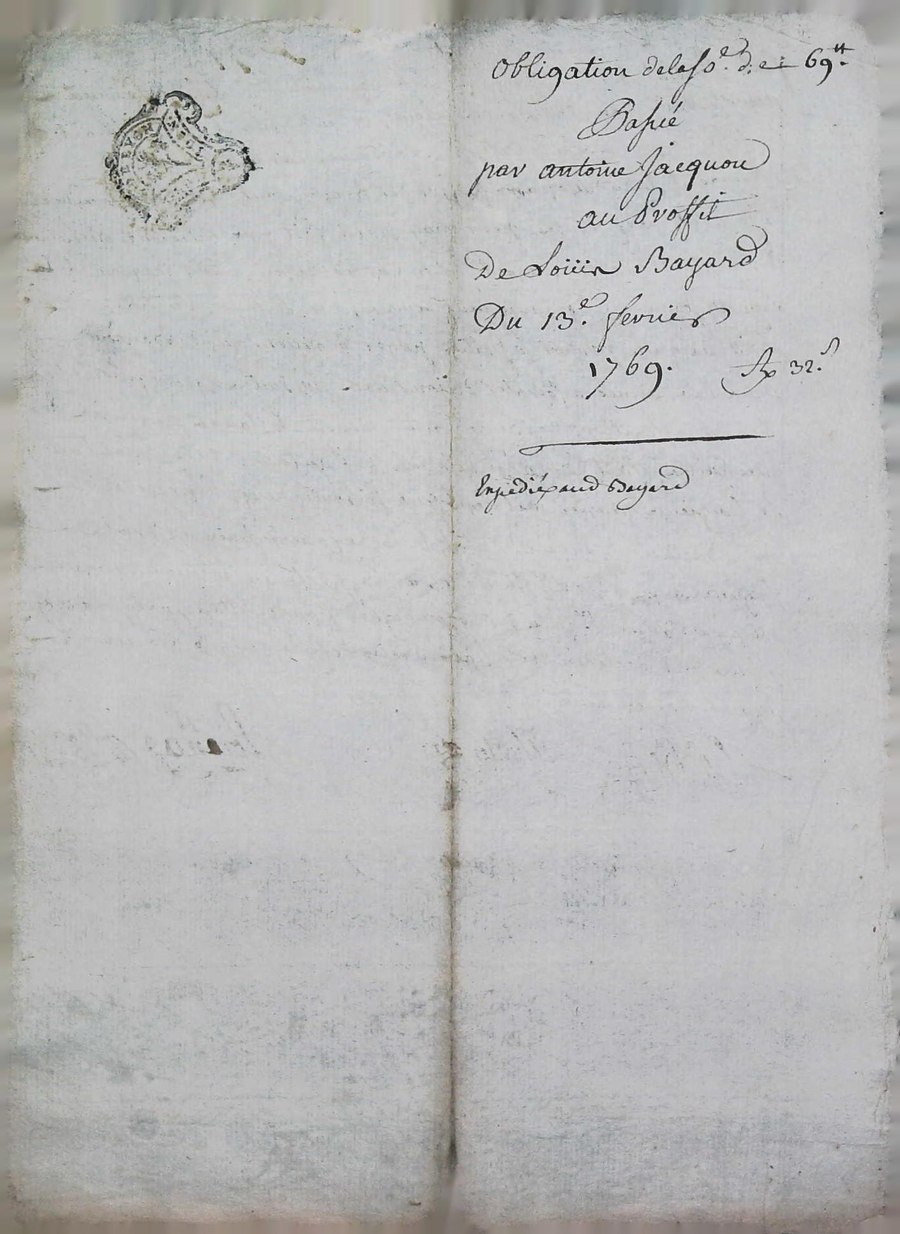 Obligation de la so.e de 69tt.
Passé
par antoine Jacquou
au Proffit
De Loüis Bayard
Du 13.e fevrier
1769.
32.s
Expedié aud Bayard